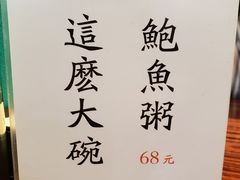 鮑魚粥
68元
這麽大碗